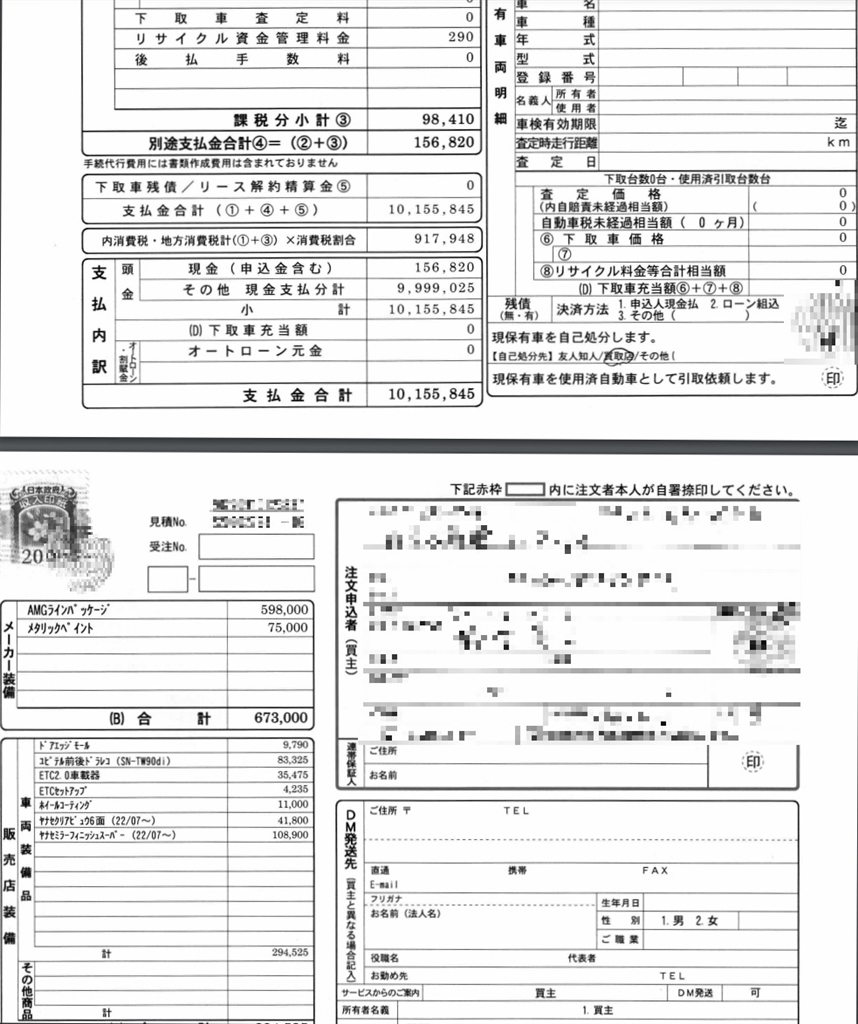 下取車査定料 0
リサイクル資金管理料金 290
後払手数料 0
課税分小計③ 98,410
別途支払金合計④＝（②＋③） 156,820
手続代行費用には書類作成費用は含まれておりません
下取車残債／リース解約精算金⑤ 0
支払金合計（①＋④＋⑤） 10,155,845
内消費税・地方消費税計(①＋③)×消費税割合 917,948
支払内訳
頭金
現金（申込金含む） 156,820
その他 現金支払分計 9,999,025
小計 10,155,845
(D)下取車充当額 0
オートローン・割賦金
オートローン元金 0
支払金合計 10,155,845
有車両明細
車名
車種
年式
型式
登録番号
名義人 所有者
使用者
車検有効期限 迄
査定時走行距離 km
査定日
下取台数0台・使用済引取台数台
査定価格 0
(内自賠責未経過相当額) ( 0)
自動車税未経過相当額( 0ヶ月) 0
⑥下取車価格 0
⑦
⑧リサイクル料金等合計相当額 0
(D)下取車充当額⑥＋⑦＋⑧
残債(無・有) 決済方法 1.申込人現金払 2.ローン組込
3.その他（ ）
現保有車を自己処分します。
【自己処分先】友人知人/買取店/その他(
現保有車を使用済自動車として引取依頼します。 印
日本政府
収入印紙
200
見積No.
受注No.
－
下記赤枠 内に注文者本人が自署捺印してください。
メーカー装備
AMGラインパッケージ 598,000
メタリックペイント 75,000
(B)合計 673,000
注文申込者（買主）
連帯保証人
ご住所
お名前
印
販売店装備
車両装備品
ドアエッジモール 9,790
ユピテル前後ドラレコ(SN-TW90di) 83,325
ETC2.0車載器 35,475
ETCセットアップ 4,235
ホイールコーティング 11,000
ヤナセクリアビュウ6面(22/07～) 41,800
ヤナセミラーフィニッシュスーパー(22/07～) 108,900
計 294,525
その他商品
計
DM発送先（買主と異なる場合記入）
ご住所 〒 TEL
直通 携帯 FAX
E-mail
フリガナ
お名前（法人名）
生年月日
性別 1.男 2.女
ご職業
役職名 代表者
お勤め先 TEL
サービスからのご案内 買主 DM発送 可
所有者名義 1.買主